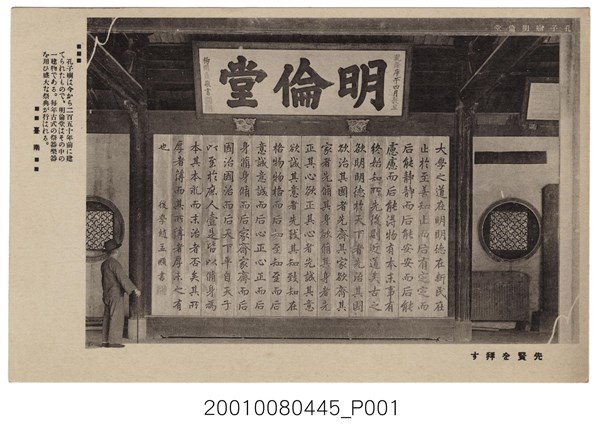 孔子廟明倫堂
明倫堂
大學之道在明明德在新民在
止於至善知止而后有定定而
后能靜靜而后能安安而后能
慮慮而后能得物有本末事有
終始知所先後則近道矣古之
欲明明德於天下者先治其國
欲治其國者先齊其家欲齊其
家者先脩其身欲脩其身者先
正其心欲正其心者先誠其意
欲誠其意者先致其知致知在
格物物格而后知至知至而后
意誠意誠而后心正心正而后
身脩身脩而后家齊家齊而后
國治國治而后天下平自天子
以至於庶人壹是皆以脩身為
本其本亂而末治者否矣其所
厚者薄而其所薄者厚未之有
也 後學趙孟頫書
孔子廟は今から二百五十年前に建
てられたもので、明倫堂はその中の
一建物である。毎年古式の祭器樂器
を用ひ盛大な祭典が行はれる。
臺南
先賢を拜す
20010080445_P001